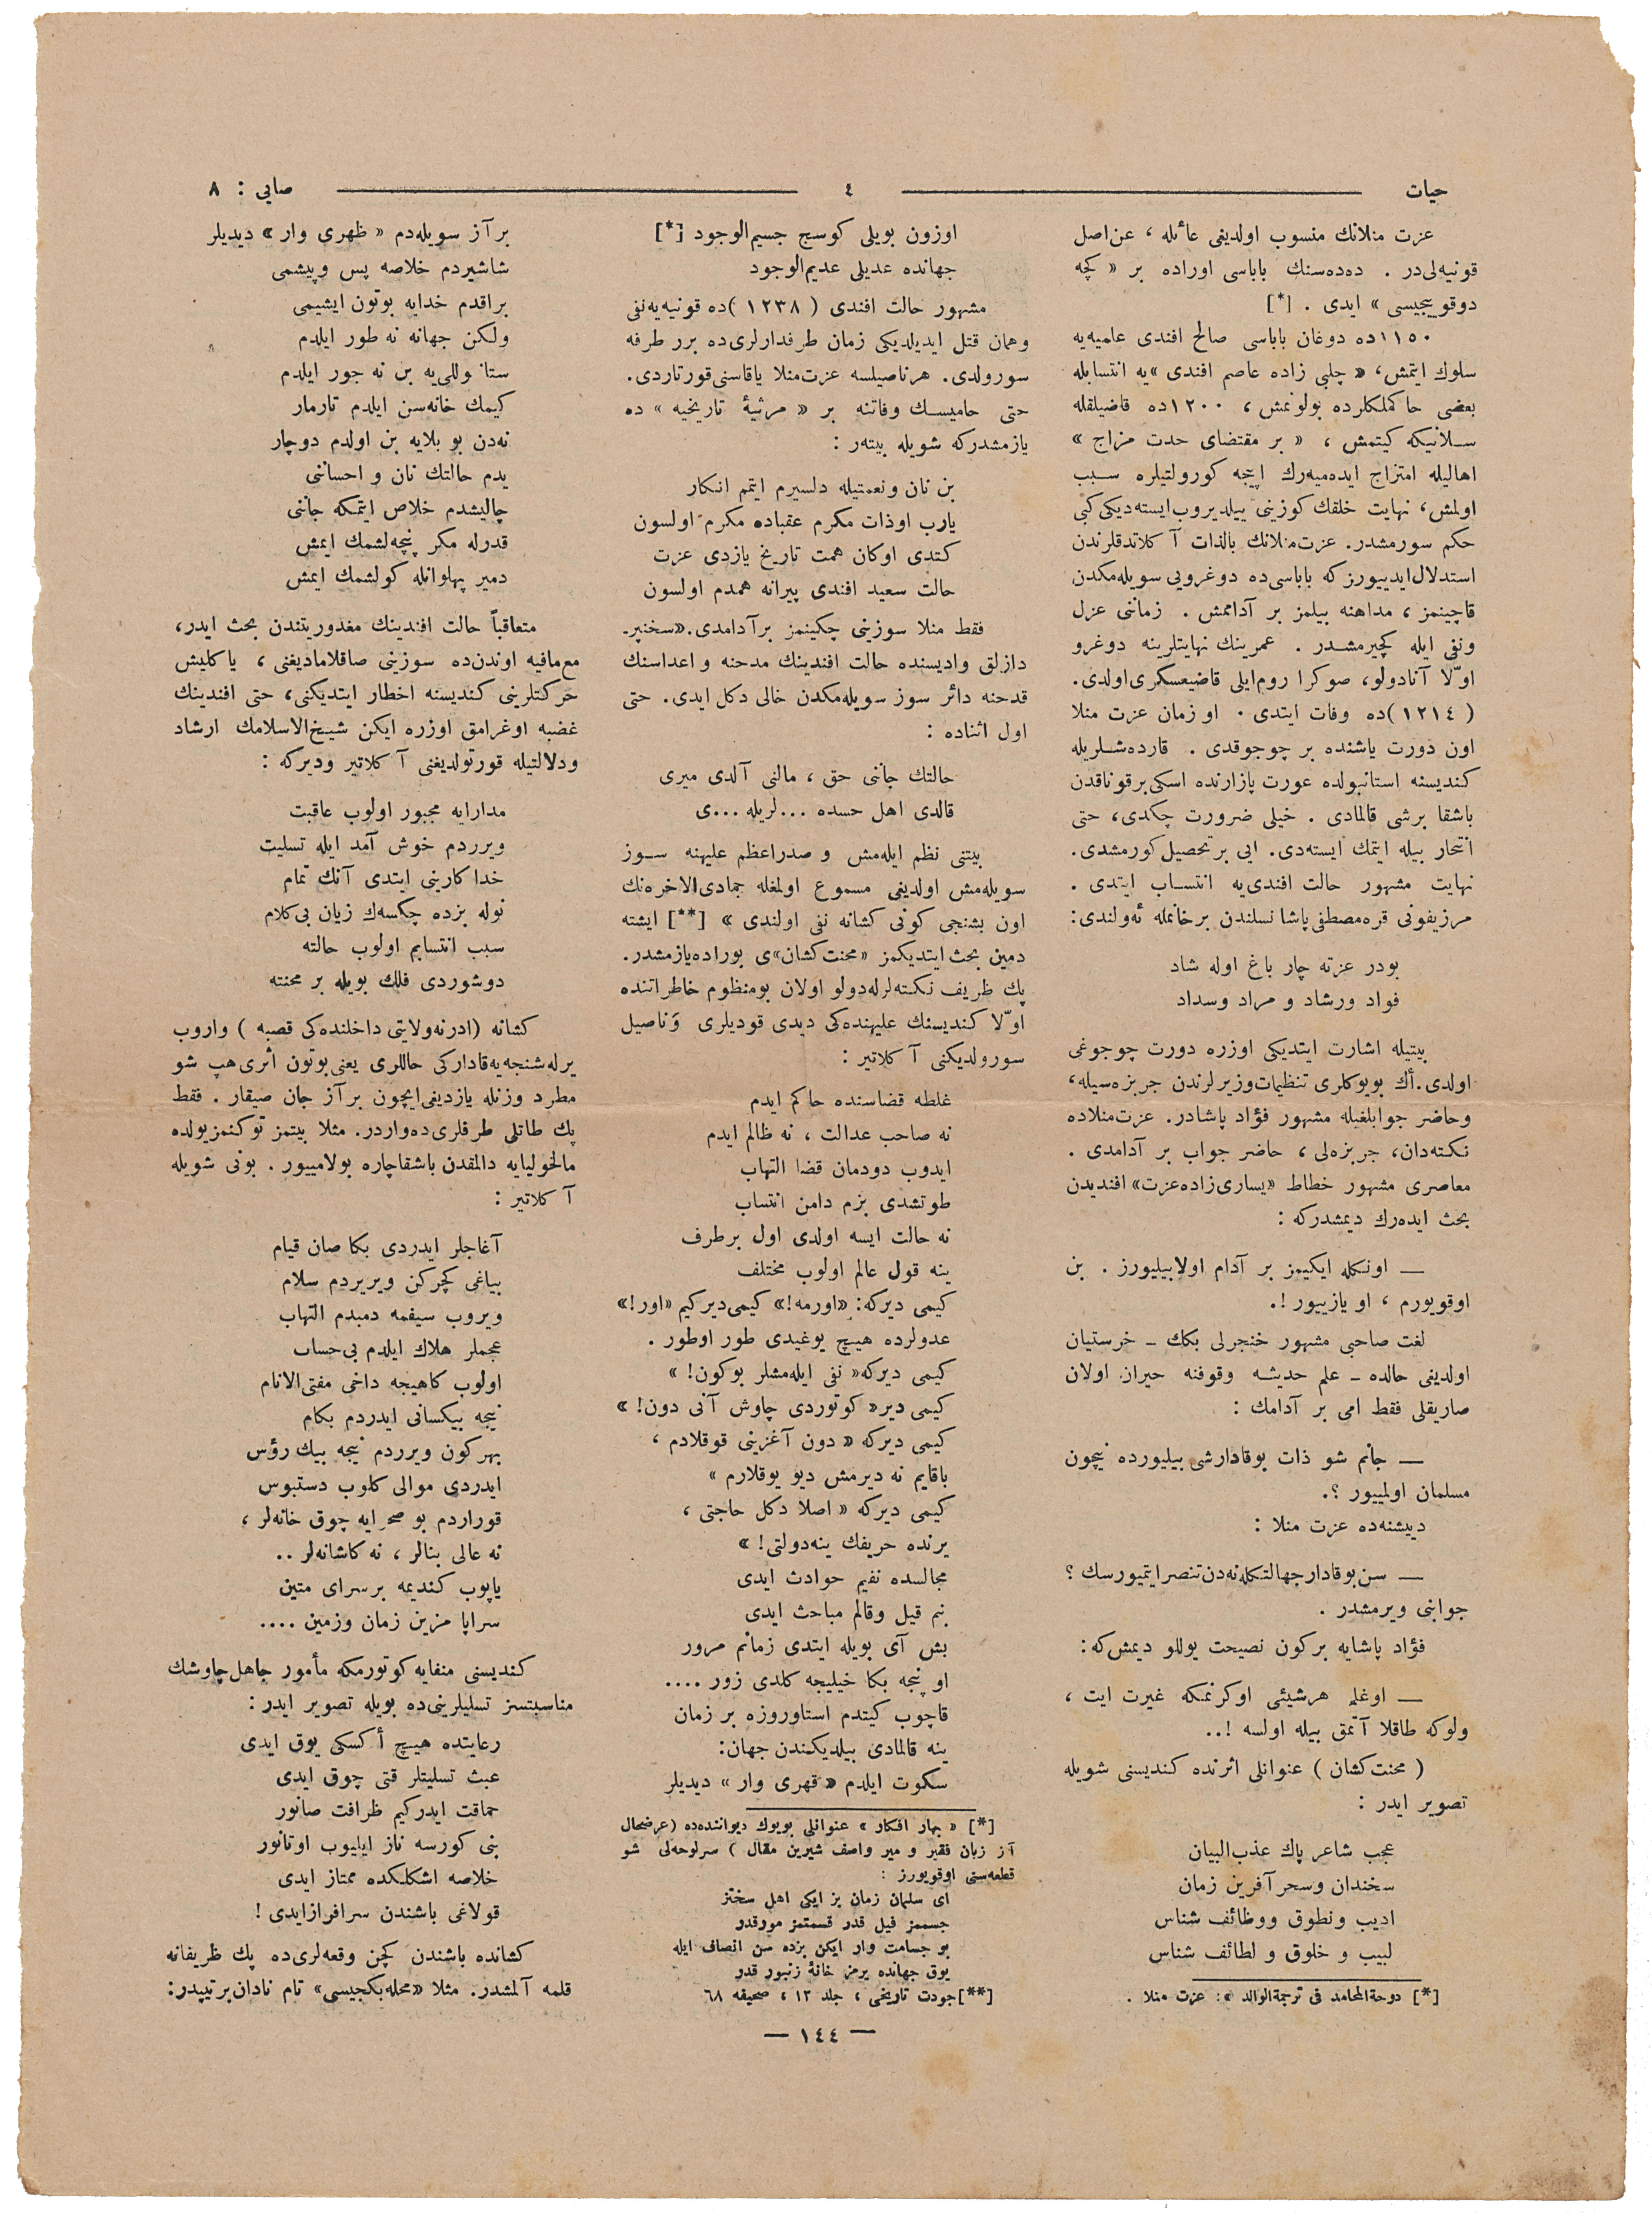 حيات
٤
صايى : ٨
عزت منلانك منسوب اولديغى عائله ، عن‌اصل
قونيه‌لى‌در . ده‌ده‌سنك باباسى اوراده بر « كچه
دوقوييجيسى » ايدى . [*]
١١٥٠ده دوغان باباسى صالح افندى علميه‌يه
سلوك ايتمش، « چلبى زاده عاصم افندى »يه انتسابله
بعضى حاكملكلرده بولونمش ، ١٢٠٠ده قاضيلقله
سـلانيكه كيتمش ، « بر مقتضاى حدت مزاج »
اهاليله امتزاج ايده‌ميه‌رك اپيجه كورولتيلره سـبب
اولمش، نهايت خلقك كوزينى ييلديروب ايسته‌ديكى كبى
حكم سورمشدر. عزت منلانك بالذات آ كلاتدقلرندن
استدلال ايدييورزكه باباسى‌ده دوغرويى سويله‌مكدن
قاچينمز ، مداهنه بيلمز بر آدامش . زمانى عزل
ونفى ايله كچيرمشـدر . عمرينك نهايتلرينه دوغرو
اوّلا آنادولو، صوكرا روم‌ايلى قاضيعسكرى اولدى.
( ١٢١٤ )ده وفات ايتدى . او زمان عزت منلا
اون دورت ياشنده بر چوجوقدى . قارده‌شـلريله
كنديسنه استانبولده عورت پازارنده اسكى برقوناقدن
باشقا برشى قالمادى . خيلى ضرورت چكدى، حتى
انتحار بيله ايتمك ايسته‌دى. ايى بر تحصيل كورمشدى.
نهايت مشهور حالت افندى‌يه انتسـاب ايتدى .
مرزيفونى قره‌مصطفى پاشا نسلندن برخانمله ئه‌ولندى:
بودر عزته چار باغ اوله شاد
فواد ورشاد و مراد وسداد
بيتيله اشارت ايتديكى اوزره دورت چوجوغى
اولدى. أك بويوكلرى تنظيمات وزيرلرندن جربزه‌سيله،
وحاضر جوابلغيله مشهور فؤاد پاشادر. عزت‌منلاده
نكته‌دان، جربزه‌لى ، حاضر جواب بر آدامدى .
معاصرى مشهور خطاط « يسارى زاده عزت» افنديدن
بحث ايده‌رك ديمشدركه :
— اونكله ايكيمز بر آدام اولابيليورز . بن
اوقويورم ، او يازييور !.
لغت صاحبى مشهور خنجرلى بكك ـ خرستيان
اولديغى حالده ـ علم حديثـه وقوفنه حيران اولان
صاريقلى فقط امى بر آدامك :
— جانم شو ذات بوقادارشى بيليورده نيچون
مسلمان اولمييور ؟.
دييشنه‌ده عزت منلا :
— سن بوقادار جهالتكله نه‌دن تنصر ايتميورسك ؟
جوابنى ويرمشدر .
فؤاد پاشايه بركون نصيحت يوللو ديمش‌كه :
— اوغلم هرشيئى اوكرنمكه غيرت ايت ،
ولوكه طاقلا آتمق بيله اولسه !..
( محنت كشان ) عنوانلى اثرنده كنديسنى شويله
تصوير ايدر :
عجب شاعر پاك عذب‌البيان
سخندان وسحرآفرين زمان
اديب ونطوق ووظائف شناس
لبيب و خلوق و لطائف شناس
[*] دوحة‌المحامد فى ترجمة‌الوالد »: عزت منلا .
اوزون بويلى كوسج جسيم‌الوجود [*]
جهانده عديلى عديم‌الوجود
مشهور حالت افندى ( ١٢٣٨ )ده قونيه‌يه نفى
وهمان قتل ايديلديكى زمان طرفدارلرى‌ده برر طرفه
سورولدى. هرناصيلسه عزت‌منلا ياقاسنى قورتاردى.
حتى حاميسـك وفاتنه بر « مرثيۀ تاريخيه » ده
يازمشدركه شويله بيتەر :
بن نان ونعمتيله دلسيرم ايتمم انكار
يارب اوذات مكرم عقباده مكرم اولسون
كتدى اوكان همت تاريخ يازدى عزت
حالت سعيد افندى پيرانه همدم اولسون
فقط منلا سوزينى چكينمز برآدامدى.«سخنپر-
دازلق واديسنده حالت افندينك مدحنه و اعداسنك
قدحنه دائر سوز سويله‌مكدن خالى دكل ايدى. حتى
اول اثناده :
حالتك جاننى حق ، مالنى آلدى ميرى
قالدى اهل حسده ...لريله ...ى
بيتنى نظم ايله‌مش و صدراعظم عليهنه سـوز
سويله‌مش اولديغى مسموع اولمغله جمادى‌الاخره‌نك
اون بشنجى كونى كشانه نفى اولندى » [**] ايشته
دمين بحث ايتديكمز «محنت كشان»ى بوراده‌يازمشدر.
پك ظريف نكته‌لرله‌دولو اولان بومنظوم خاطراتنده
اوّلا كنديسنك عليهنده‌كى ديدى قوديلرى وناصيل
سورولديكنى آ كلاتير :
غلطه قضاسنده حاكم ايدم
نه صاحب عدالت ، نه ظالم ايدم
ايدوب دودمان قضا التهاب
طوتشدى بزم دامن انتساب
نه حالت ايسه اولدى اول برطرف
ينه قول عالم اولوب مختلف
كيمى ديركه: «اورمه!» كيمى ديركيم «اور!»
عدولرده هيچ يوغيدى طور اوطور .
كيمى ديركه« نفى ايله‌مشلر بوكون! »
كيمى دير« كوتوردى چاوش آنى دون! »
كيمى ديركه « دون آغزينى قوقلادم ،
باقايم نه ديرمش ديو يوقلارم »
كيمى ديركه « اصلا دكل حاجتى ،
يرنده حريفك ينه‌دولتى! »
مجالسده نفيم حوادث ايدى
بنم قيل وقالم مباحث ايدى
بش آى بويله ايتدى زمانم مرور
او پنجه بكا خيليجه كلدى زور ....
قاچوب كيتدم استاوروزه بر زمان
ينه قالمادى بيلديكندن جهان:
سكوت ايلدم « قهرى وار » ديديلر
[*] « بهار افكار » عنوانلى بويوك ديواننده‌ده (عرضحال
آز زبان فقير و مير واصف شيرين مقال ) سرلوحه‌لى شو
قطعه‌سنى اوقويورز :
اى سلمان زمان بز ايكى اهل سختز
جسممز فيل قدر قسمتمز مورقدر
بو جسامت وار ايكن بزده سن انصاف ايله
يوق جهانده يرمز خانۀ زنبور قدر
[**]جودت تاريخى ، جلد ١٢ ، صحيفه ٦٨
بر آز سويله‌دم « ظهرى وار » ديديلر
شاشيردم خلاصه پس وپيشمى
براقدم خدايه بوتون ايشيمى
ولكن جهانه نه طور ايلدم
وللى‌يه بن نه جور ايلدم
كيمك خانه‌سن ايلدم تارمار
نه‌دن بو بلايه بن اولدم دوچار
يدم حالتك نان و احساننى
چاليشدم خلاص ايتمكه جاننى
قدرله مكر پنچه‌لشمك ايمش
دمير پهلوانله كولشمك ايمش
متعاقباً حالت افندينك مغدوريتندن بحث ايدر،
مع‌مافيه اوندن‌ده سوزينى صاقلاماديغنى ، ياكليش
حركتلرينى كنديسنه اخطار ايتديكنى، حتى افندينك
غضبه اوغرامق اوزره ايكن شيخ‌الاسلامك ارشاد
ودلالتيله قورتولديغنى آ كلاتير وديركه :
مدارايه مجبور اولوب عاقبت
ويرردم خوش آمد ايله تسليت
خدا كارينى ايتدى آنك تمام
نوله بزده چكسه‌ك زيان بى‌كلام
سبب انتسابم اولوب حالته
دوشوردى فلك بويله بر محنته
كشانه (ادرنه‌ولايتى داخلنده‌كى قصبه ) واروب
يرله‌شنجه‌يه‌قاداركى حاللرى يعنى‌بوتون اثرى هپ شو
مطرد وزنله يازديغى ايچون برآز جان صيقار . فقط
پك طاتلى طرفلرى‌ده‌واردر. مثلا بيتمز توكنمزيولده
مالخوليايه دالمقدن باشقاچاره بولامييور . بونى شويله
آ كلاتير :
آغاجلر ايدردى بكا صان قيام
بياغى كچركن ويريردم سلام
ويروب سيفمه دمبدم التهاب
عجملر هلاك ايلدم بى‌حساب
اولوب كاهيجه داخى مفتى‌الانام
نيجه بيكسانى ايدردم بكام
بهركون ويرردم نيجه بيك رؤس
ايدردى موالى كلوب دستبوس
قوراردم بو صحرايه چوق خانه‌لر ،
نه عالى بنالر ، نه كاشانه‌لر ..
ياپوب كنديمه بر سراى متين
سراپا مزين زمان وزمين ....
كنديسنى منفايه كوتورمكه مأمور جاهل چاوشك
مناسبتسز تسليلرينى‌ده بويله تصوير ايدر :
رعايتده هيچ أكسكى يوق ايدى
عبث تسليتلر قتى چوق ايدى
حماقت ايدركيم ظرافت صانور
بنى كورسه ناز ايليوب اوتانور
خلاصه اشكلكده ممتاز ايدى
قولاغى باشندن سرافرازايدى !
كشانده باشندن كچن وقعه‌لرى‌ده پك ظريفانه
قلمه آلمشدر. مثلا «محله‌بكجيسى» تام نادان‌برتيپدر:
— ١٤٤ —